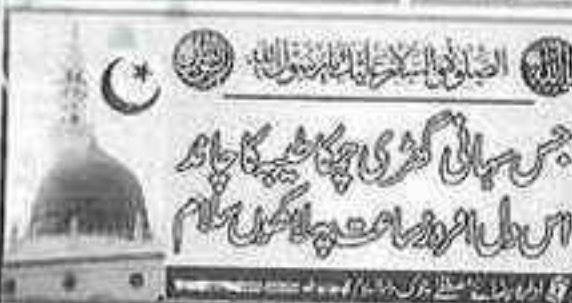 الصلوة والسلام علیک یا رسول اللہ
جس سہانی گھڑی چمکا طیبہ کا چاند
اس دل افروز ساعت پہ لاکھوں سلام